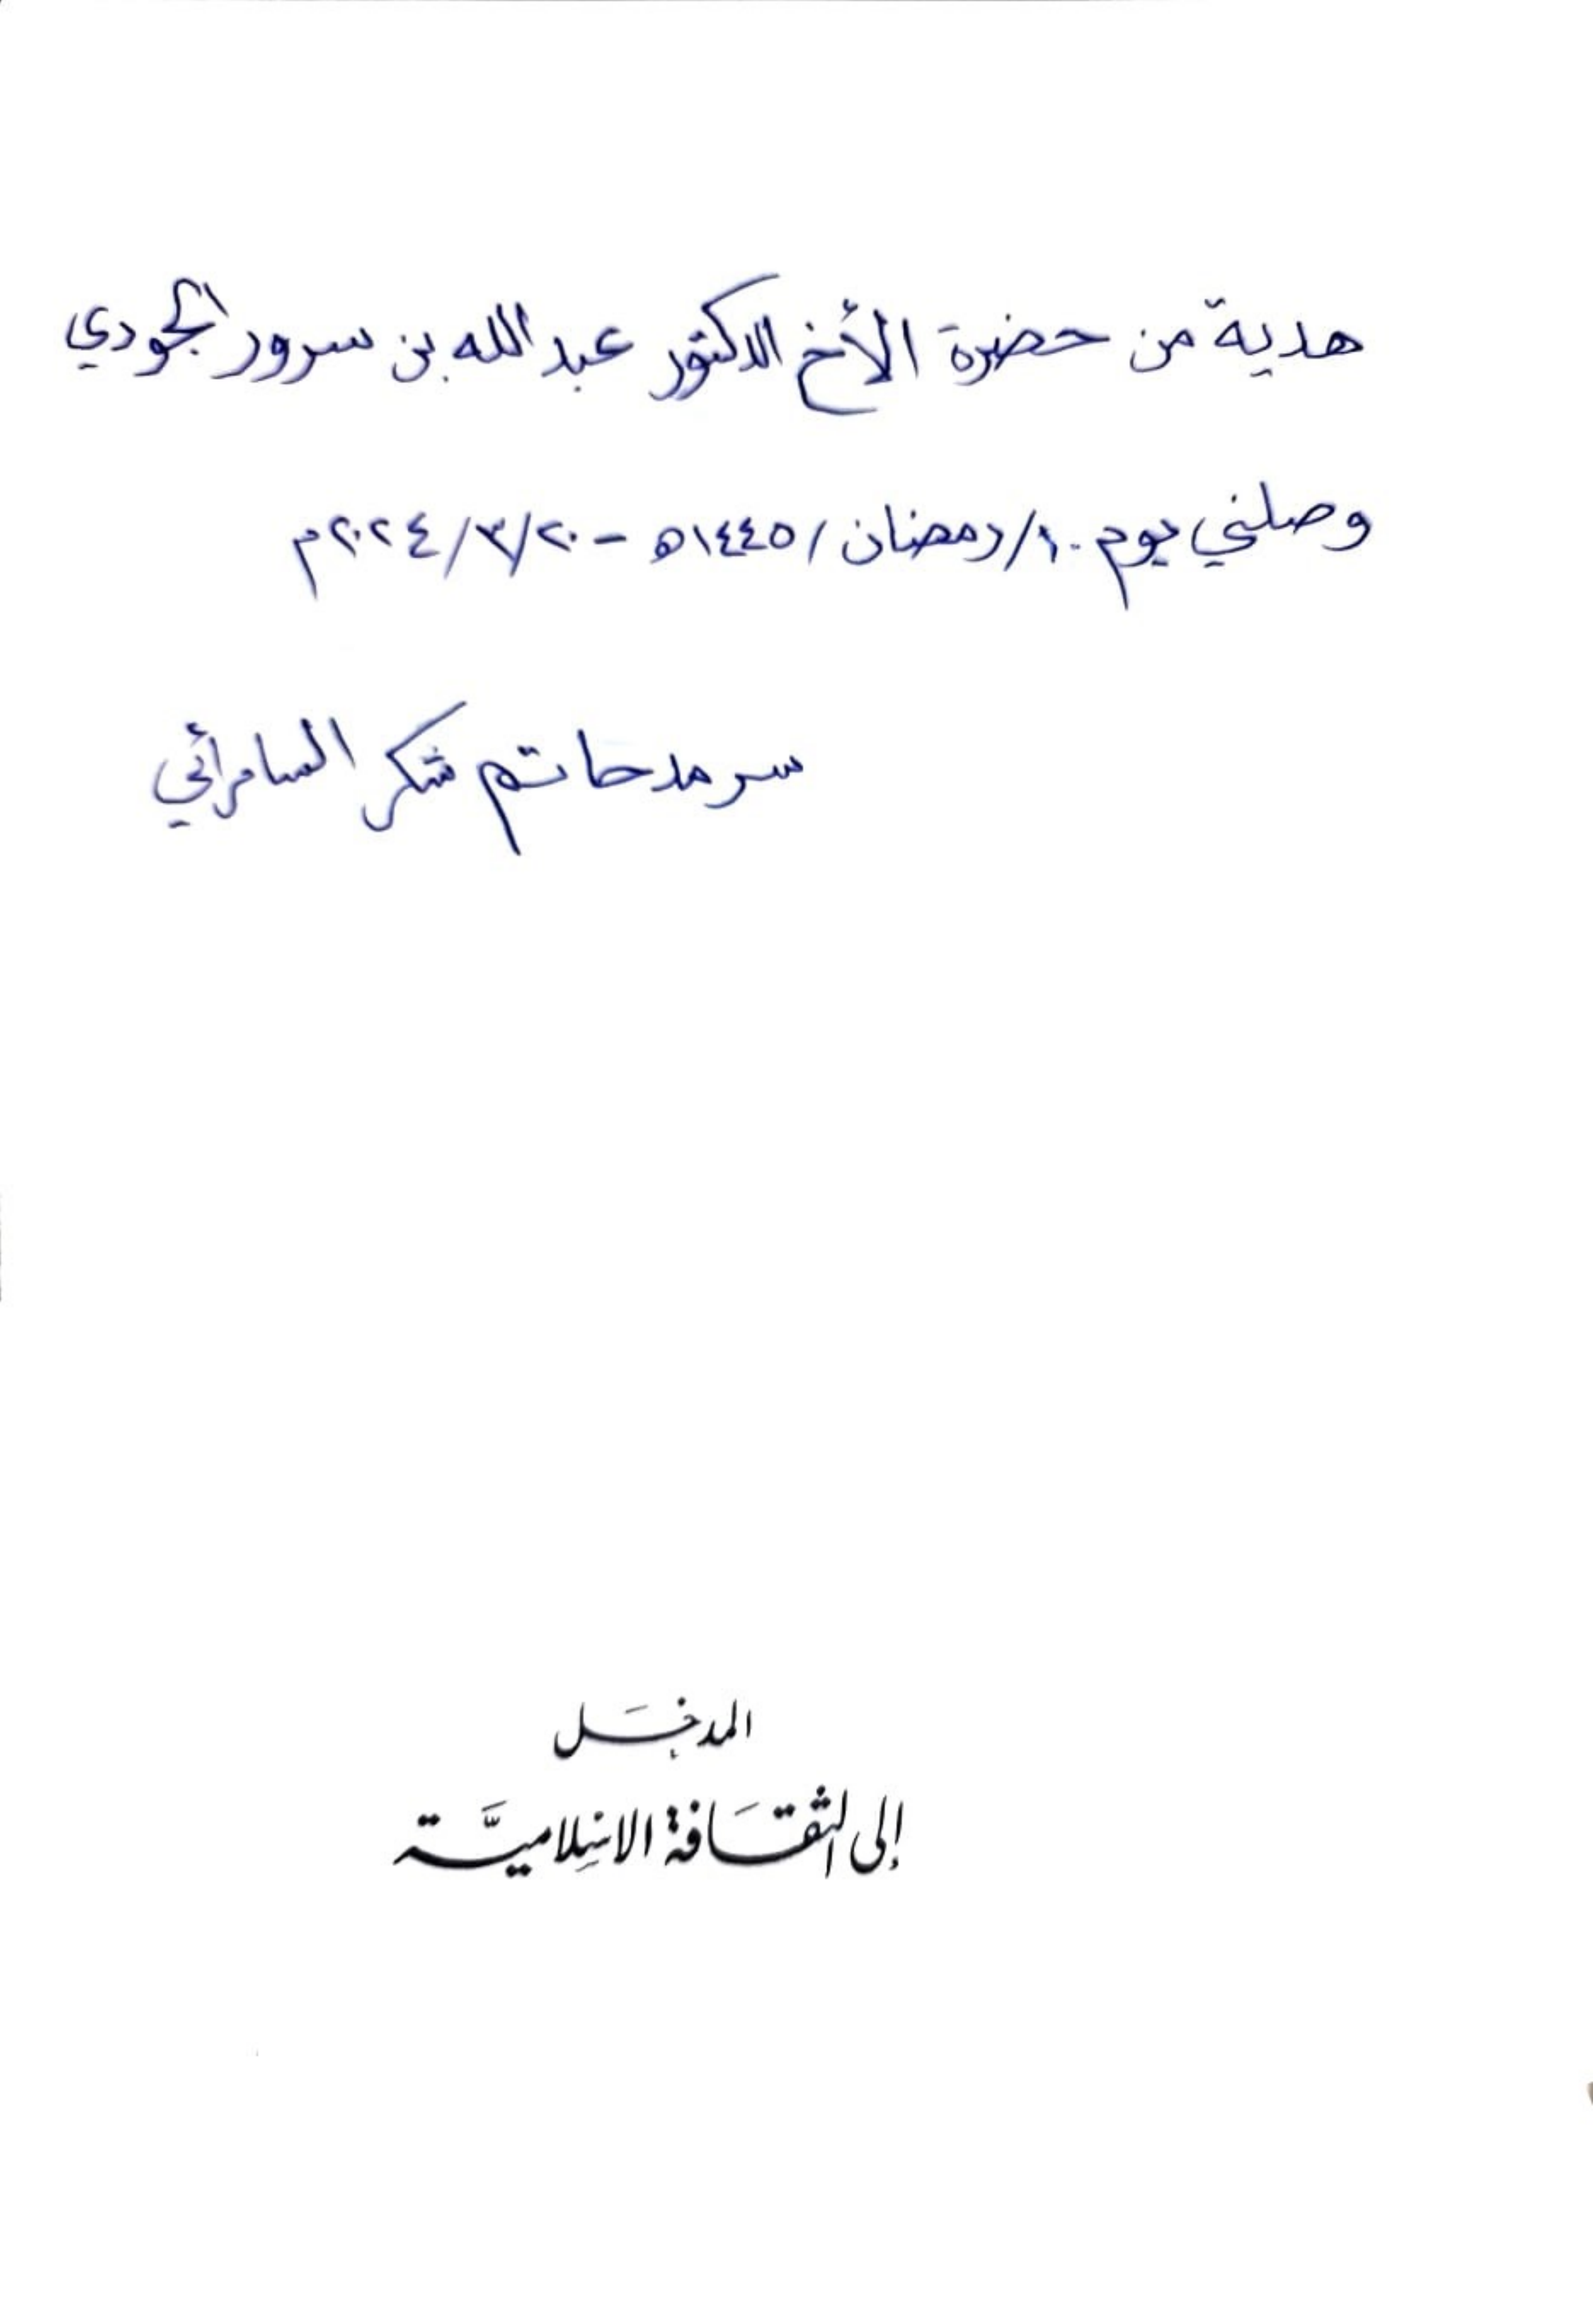 هدية من حضرة الأخ الدكتور عبد الله بن سرور الجودي
وصلني يوم ١٠/رمضان/١٤٤٥ه - ٢٠/٣/٢٠٢٤م
سرمد حاتم شكر السامرائي
المدخَل
إلى الثقَافة الاسْلاميَّة